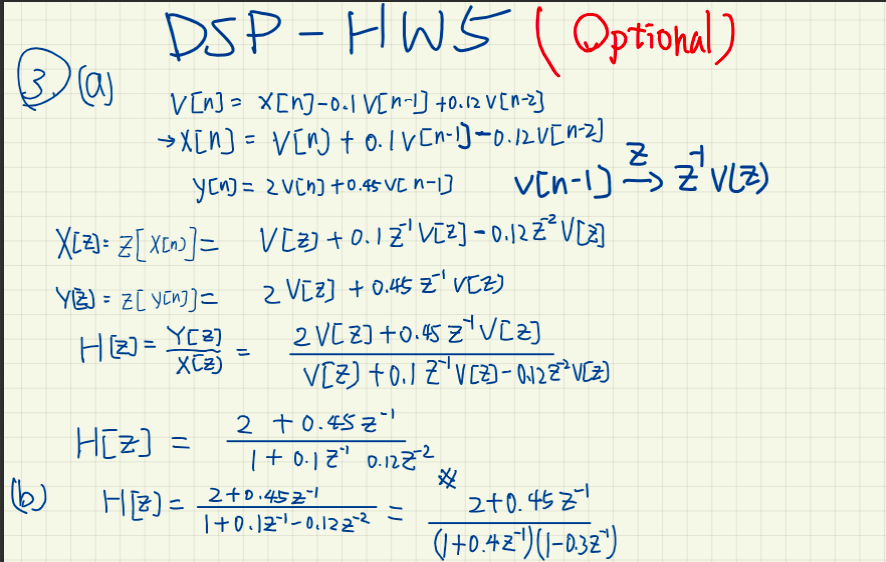 DSP - HW5 (Optional)
3. (a)
V[n] = X[n]-0.1V[n-1]+0.12V[n-2]
→X[n] = V[n] + 0.1V[n-1]-0.12V[n-2]
y[n] = 2V[n]+0.45V[n-1] V[n-1] →^Z Z⁻¹V(Z)
X[Z] = Z[X[n]] = V[Z] + 0.1Z⁻¹V[Z] - 0.12Z⁻²V[Z]
Y[Z] = Z[y[n]] = 2V[Z] + 0.45Z⁻¹V[Z]
H[Z] = Y[Z]/X[Z] = (2V[Z]+0.45Z⁻¹V[Z])/(V[Z]+0.1Z⁻¹V[Z]-0.12Z⁻²V[Z])
H[Z] = (2+0.45Z⁻¹)/(1+0.1Z⁻¹ 0.12Z⁻²) ※
(b) H[Z] = (2+0.45Z⁻¹)/(1+0.1Z⁻¹-0.12Z⁻²) = (2+0.45Z⁻¹)/((1+0.4Z⁻¹)(1-0.3Z⁻¹))